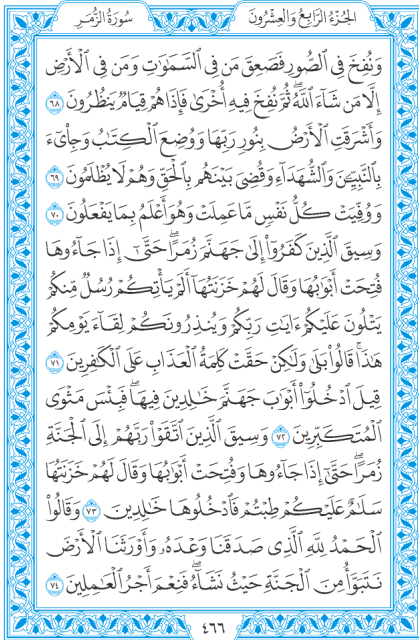 الجزء الرابع والعشرون
سورة الزمر
وَنُفِخَ فِي ٱلصُّورِ فَصَعِقَ مَن فِي ٱلسَّمَٰوَٰتِ وَمَن فِي ٱلْأَرْضِ
إِلَّا مَن شَآءَ ٱللَّهُ ۖ ثُمَّ نُفِخَ فِيهِ أُخْرَىٰ فَإِذَا هُمْ قِيَامٌ يَنظُرُونَ ٦٨
وَأَشْرَقَتِ ٱلْأَرْضُ بِنُورِ رَبِّهَا وَوُضِعَ ٱلْكِتَٰبُ وَجِا۟ىٓءَ
بِٱلنَّبِيِّـۧنَ وَٱلشُّهَدَآءِ وَقُضِيَ بَيْنَهُم بِٱلْحَقِّ وَهُمْ لَا يُظْلَمُونَ ٦٩
وَوُفِّيَتْ كُلُّ نَفْسٍ مَّا عَمِلَتْ وَهُوَ أَعْلَمُ بِمَا يَفْعَلُونَ ٧٠
وَسِيقَ ٱلَّذِينَ كَفَرُوٓا۟ إِلَىٰ جَهَنَّمَ زُمَرًا ۖ حَتَّىٰٓ إِذَا جَآءُوهَا
فُتِحَتْ أَبْوَٰبُهَا وَقَالَ لَهُمْ خَزَنَتُهَآ أَلَمْ يَأْتِكُمْ رُسُلٌ مِّنكُمْ
يَتْلُونَ عَلَيْكُمْ ءَايَٰتِ رَبِّكُمْ وَيُنذِرُونَكُمْ لِقَآءَ يَوْمِكُمْ
هَٰذَا ۚ قَالُوا۟ بَلَىٰ وَلَٰكِنْ حَقَّتْ كَلِمَةُ ٱلْعَذَابِ عَلَى ٱلْكَٰفِرِينَ ٧١
قِيلَ ٱدْخُلُوٓا۟ أَبْوَٰبَ جَهَنَّمَ خَٰلِدِينَ فِيهَا ۖ فَبِئْسَ مَثْوَى
ٱلْمُتَكَبِّرِينَ ٧٢ وَسِيقَ ٱلَّذِينَ ٱتَّقَوْا۟ رَبَّهُمْ إِلَى ٱلْجَنَّةِ
زُمَرًا ۖ حَتَّىٰٓ إِذَا جَآءُوهَا وَفُتِحَتْ أَبْوَٰبُهَا وَقَالَ لَهُمْ خَزَنَتُهَا
سَلَٰمٌ عَلَيْكُمْ طِبْتُمْ فَٱدْخُلُوهَا خَٰلِدِينَ ٧٣ وَقَالُوا۟
ٱلْحَمْدُ لِلَّهِ ٱلَّذِي صَدَقَنَا وَعْدَهُۥ وَأَوْرَثَنَا ٱلْأَرْضَ
نَتَبَوَّأُ مِنَ ٱلْجَنَّةِ حَيْثُ نَشَآءُ ۖ فَنِعْمَ أَجْرُ ٱلْعَٰمِلِينَ ٧٤
٤٦٦